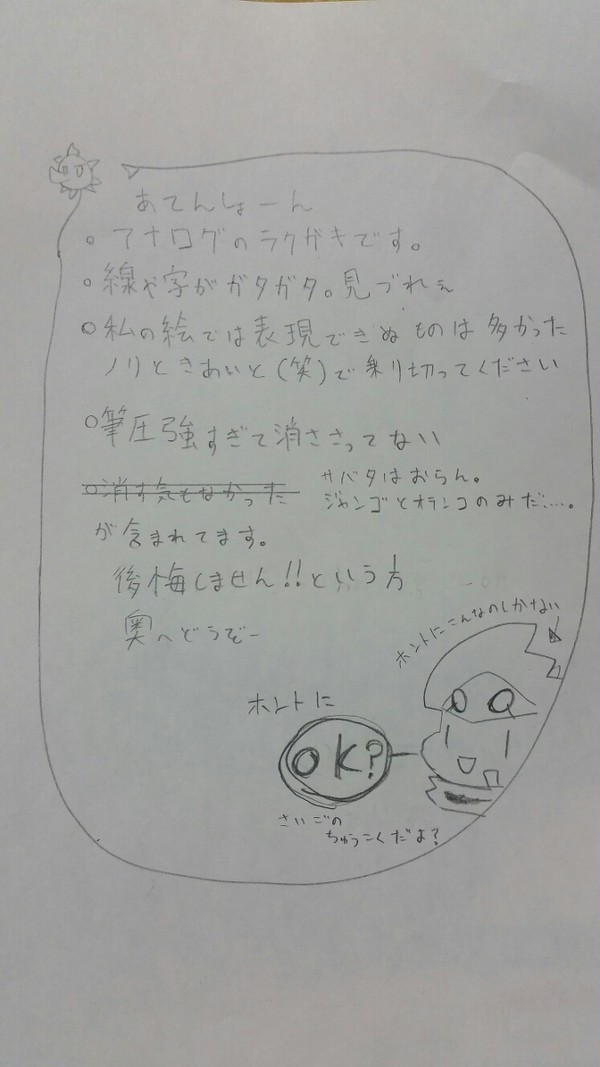 あてんしょーん
。アナログのラクガキです。
。線や字がガタガタ。見づれぇ
○私の絵では表現できぬものは多かった
ノリときあいと(笑)で乗り切ってください
○筆圧強すぎて消ささってない
○消す気もなかった
サバタはおらん。
ジャンゴとオテンコのみだ……。
が含まれてます。
後悔しません!!という方
奥へどうぞー
ホントにこんなのしかない
ホントに
OK?
さいごの
ちゅうこくだよ?